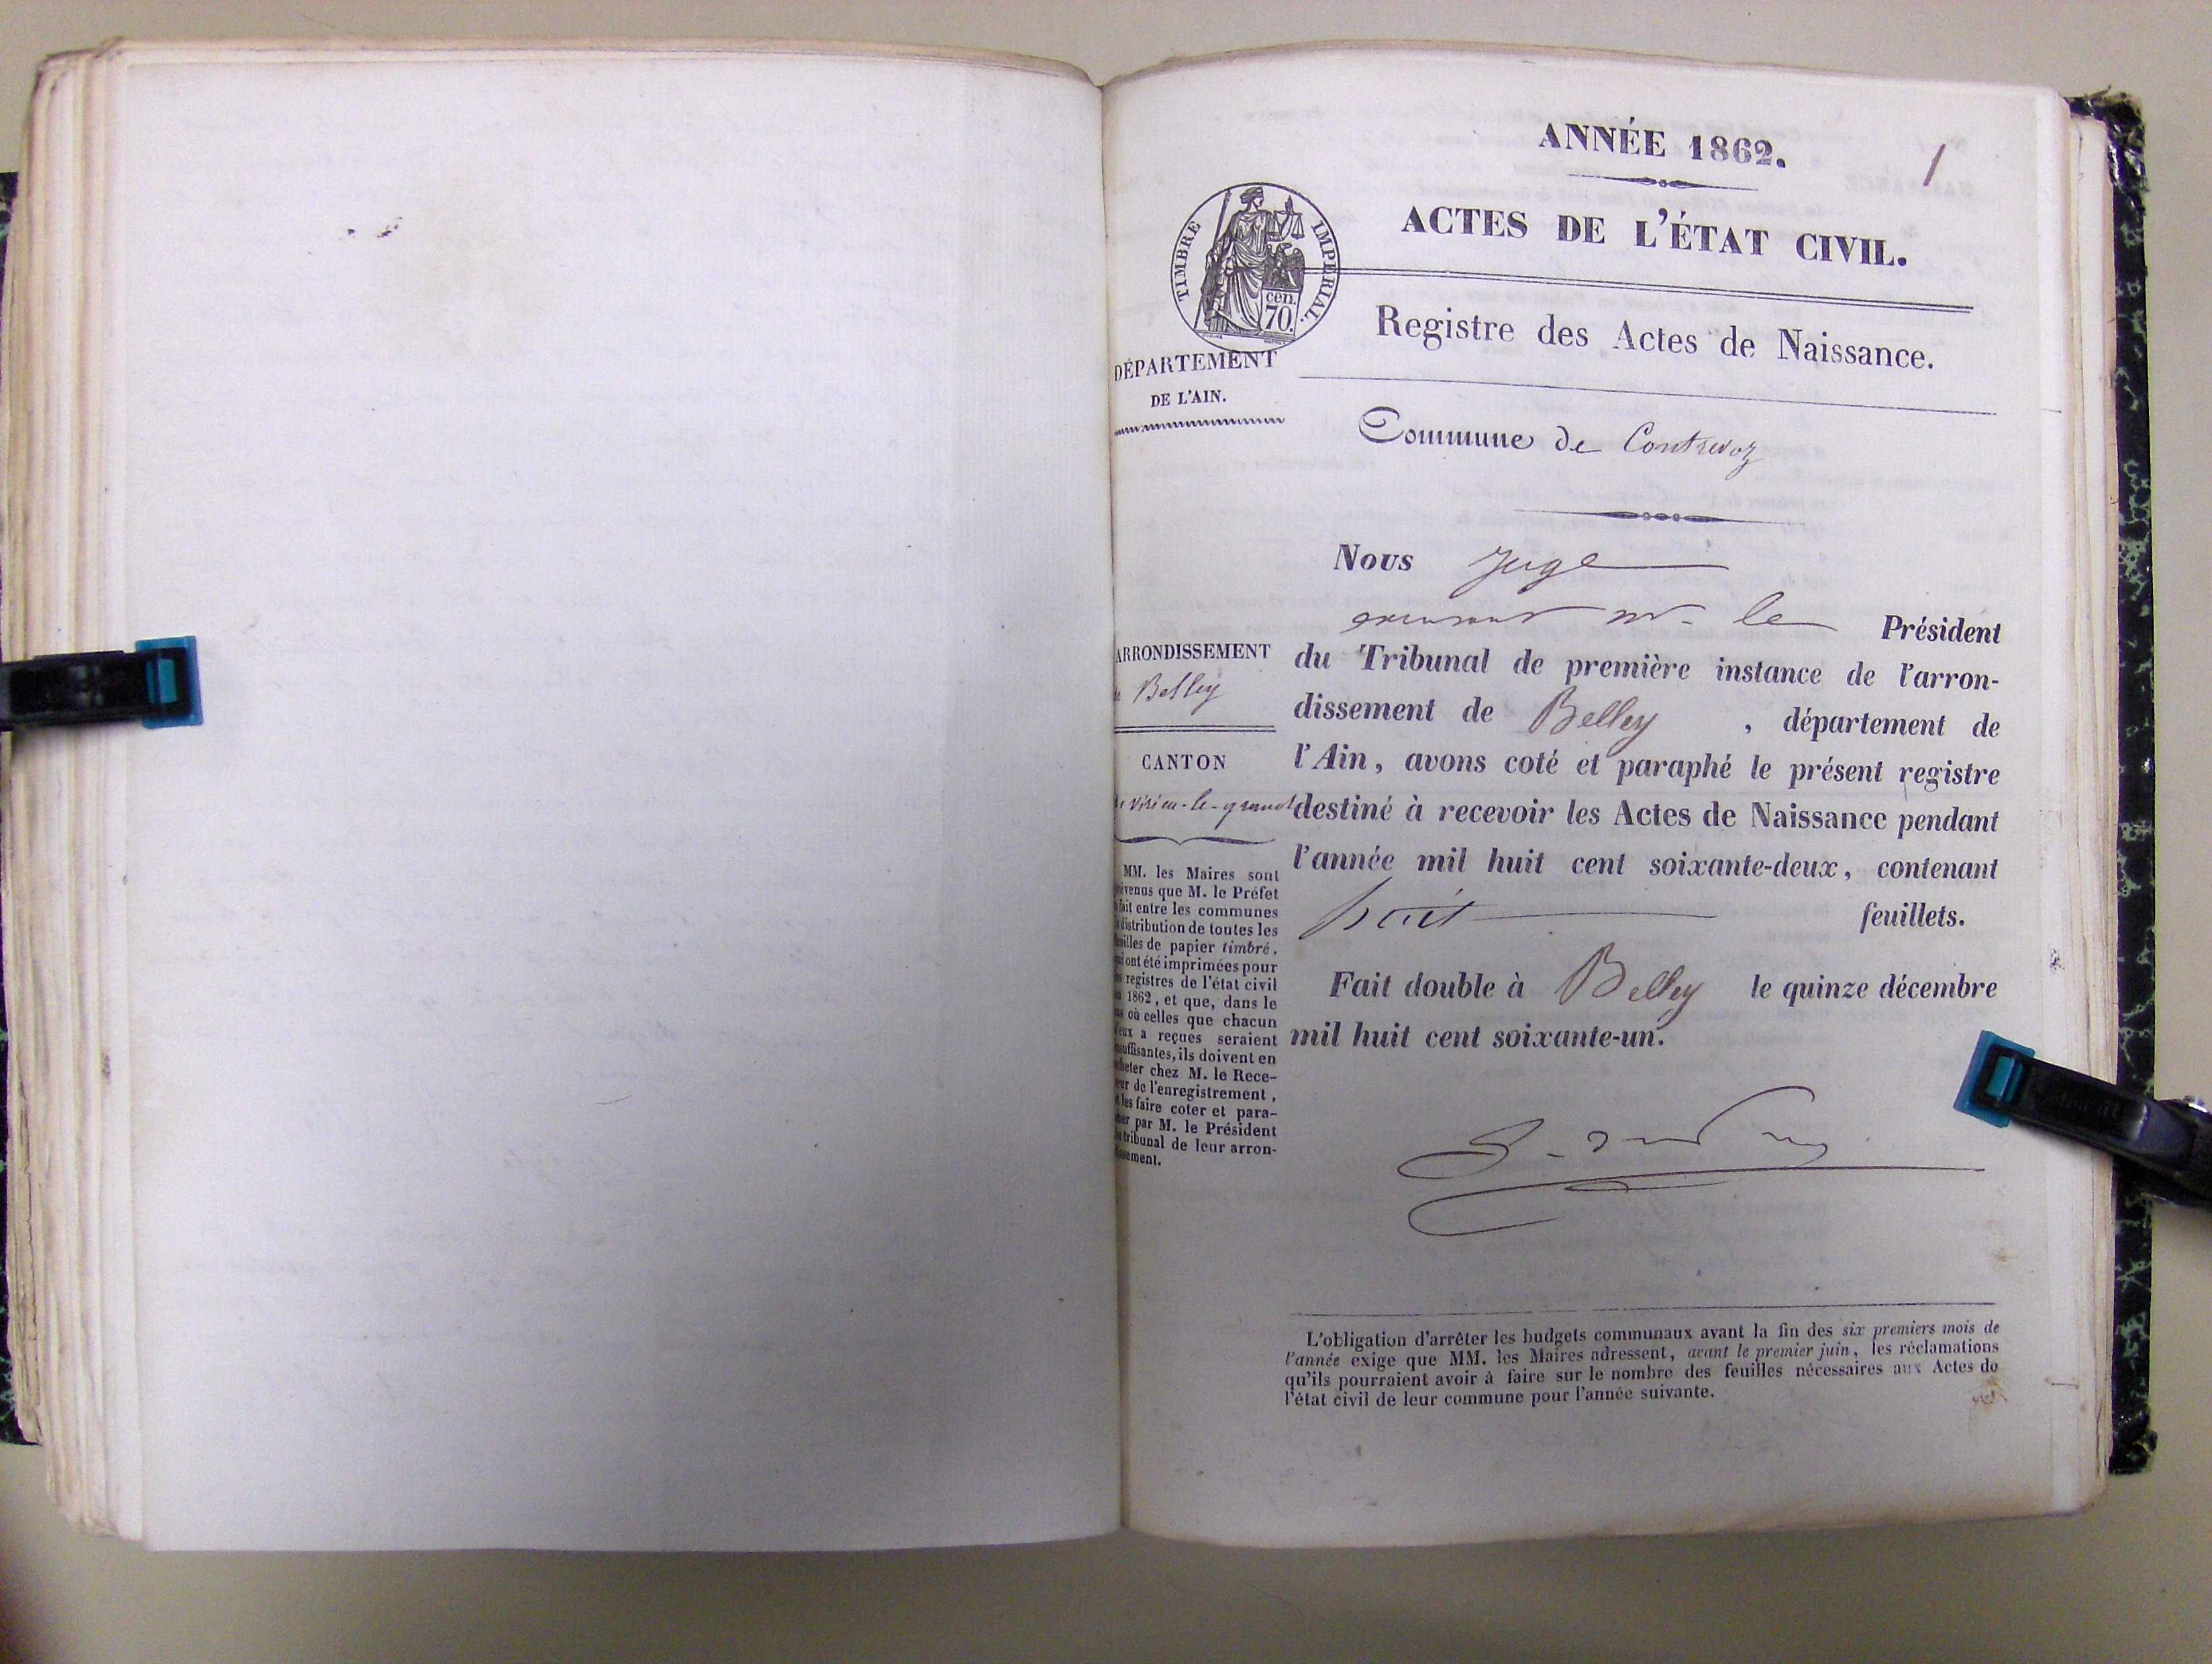 ANNÉE 1862.
1
ACTES DE L'ÉTAT CIVIL.
TIMBRE IMPERIAL.
cen.
70.
Registre des Actes de Naissance.
DÉPARTEMENT
DE L'AIN.
Commune de Contrevoz
Nous Juge
M. le Président
du Tribunal de première instance de l'arron-
dissement de Belley , département de
l'Ain, avons coté et paraphé le présent registre
destiné à recevoir les Actes de Naissance pendant
l'année mil huit cent soixante-deux, contenant
huit feuillets.
Fait double à Belley le quinze décembre
mil huit cent soixante-un.
ARRONDISSEMENT
Belley
CANTON
virieu-le-grand
MM. les Maires sont
évenus que M. le Préfet
fait entre les communes
distribution de toutes les
uilles de papier timbré,
i ont été imprimées pour
registres de l'état civil
1862, et que, dans le
où celles que chacun
eux a reçues seraient
suffisantes, ils doivent en
heter chez M. le Rece-
ur de l'enregistrement,
les faire coter et para-
her par M. le Président
tribunal de leur arron-
ssement.
L'obligation d'arrêter les budgets communaux avant la fin des six premiers mois de
l'année exige que MM. les Maires adressent, avant le premier juin, les réclamations
qu'ils pourraient avoir à faire sur le nombre des feuilles nécessaires aux Actes de
l'état civil de leur commune pour l'année suivante.